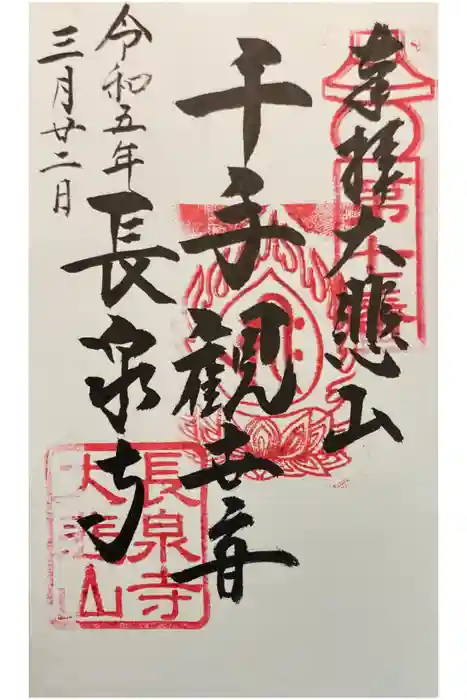 奉拝大悲山
千手観世音
長泉寺
令和五年
三月廿二日
長泉寺
大悲山